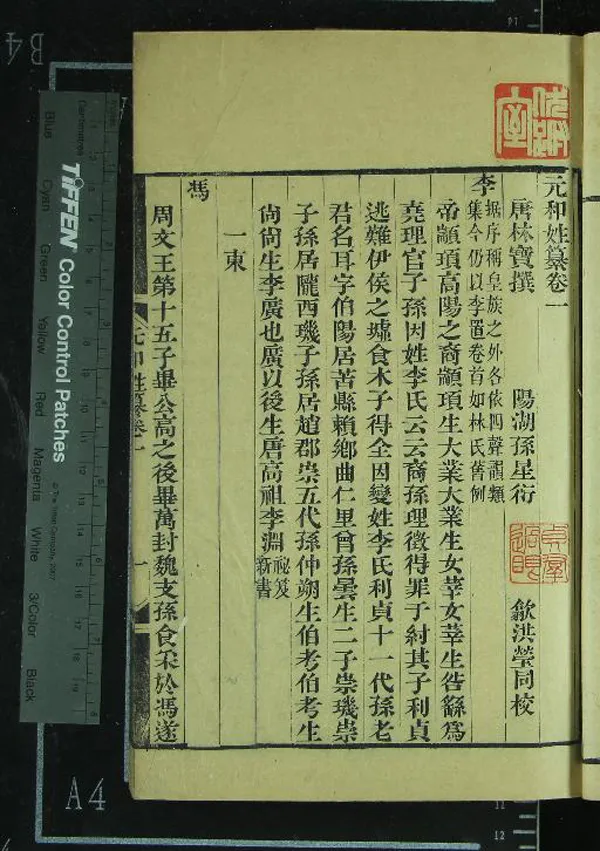 元和姓纂卷一
唐林寶撰 陽湖孫星衍 歙洪瑩同校
李 据序稱皇族之外各依四聲韻類
集今仍以李置卷首如林氏舊例
帝顓頊高陽之裔顓頊生大業大業生女莘女莘生咎繇爲
堯理官子孫因姓李氏云云裔孫理徵得罪于紂其子利貞
逃難伊侯之墟食木子得全因變姓李氏利貞十一代孫老
君名耳字伯陽居苦縣賴鄉曲仁里曾孫曇生二子崇璣崇
子孫居隴西璣子孫居趙郡崇五代孫仲翔生伯考伯考生
尙尙生李廣也廣以後生唐高祖李淵 祕笈
新書
一東
馮
周文王第十五子畢公高之後畢萬封魏支孫食采於馮遂
元和姓纂卷一
一
TIFFEN Color Control Patches
© The Tiffen Company, 2007
Centimetres
Blue
Cyan
Green
Yellow
Red
Magenta
White
3/Color
Black
B4
A4
11
12